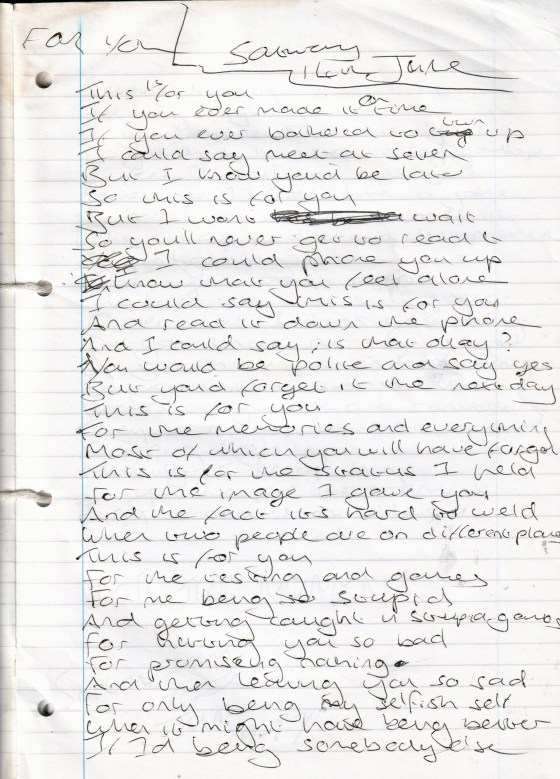 For you
Saturday
11th June
This is for you
If you ever made it on time
If you ever bothered to turn up
I could say meet at seven
But I know you'd be late
So this is for you
But I wont wait
So you'll never get to read it
I could phone you up
know that you feel alone
I could say this is for you
And read it down the phone
And I could say, is that okay?
You would be polite and say yes
But you'd forget it the next day
This is for you
For the memories and everything
Most of which you will have forgot
This is for the status I held
For the image I gave you
And the fact its hard to weld
When two people are on different planes
This is for you
For the testing and games
For me being so stupid
And getting caught in stupid games
For hurting you so bad
For promising nothing
And then leaving you so sad
For only being my selfish self
When it might have being better
If I'd being somebody else